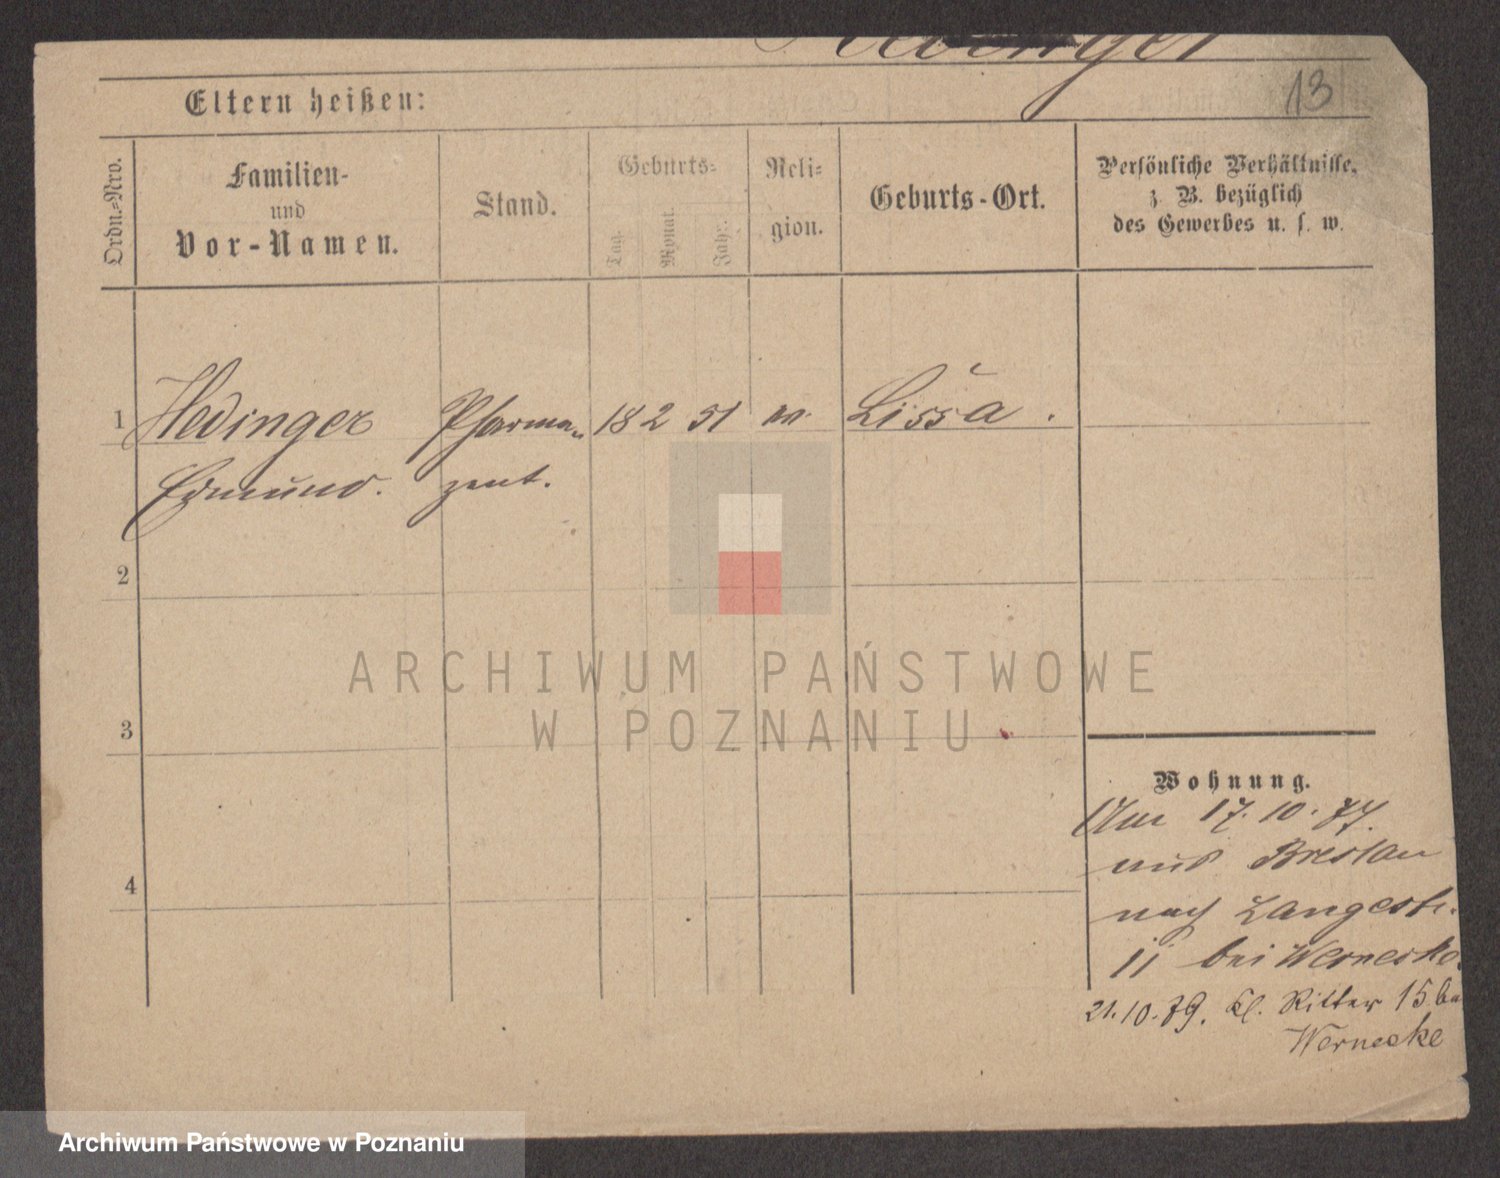 13
Eltern heißen:
Ordn.-Nro.
Familien-
und
Vor-Namen.
Stand.
Geburts-
Tag.
Monat.
Jahr.
Reli-
gion.
Geburts-Ort.
Persönliche Verhältnisse,
z. B. bezüglich
des Gewerbes u. s. w.
1 Hedinger Pharma- 18 2 51 Lissa.
Edmund. zeut.
2
3
4
Wohnung.
17.10.77.
aus Breslau
nach Langestr.
11 bei Wernecke.
21.10.79. Kl. Ritter 15 bei
Wernecke
ARCHIWUM PAŃSTWOWE
W POZNANIU
Archiwum Państwowe w Poznaniu